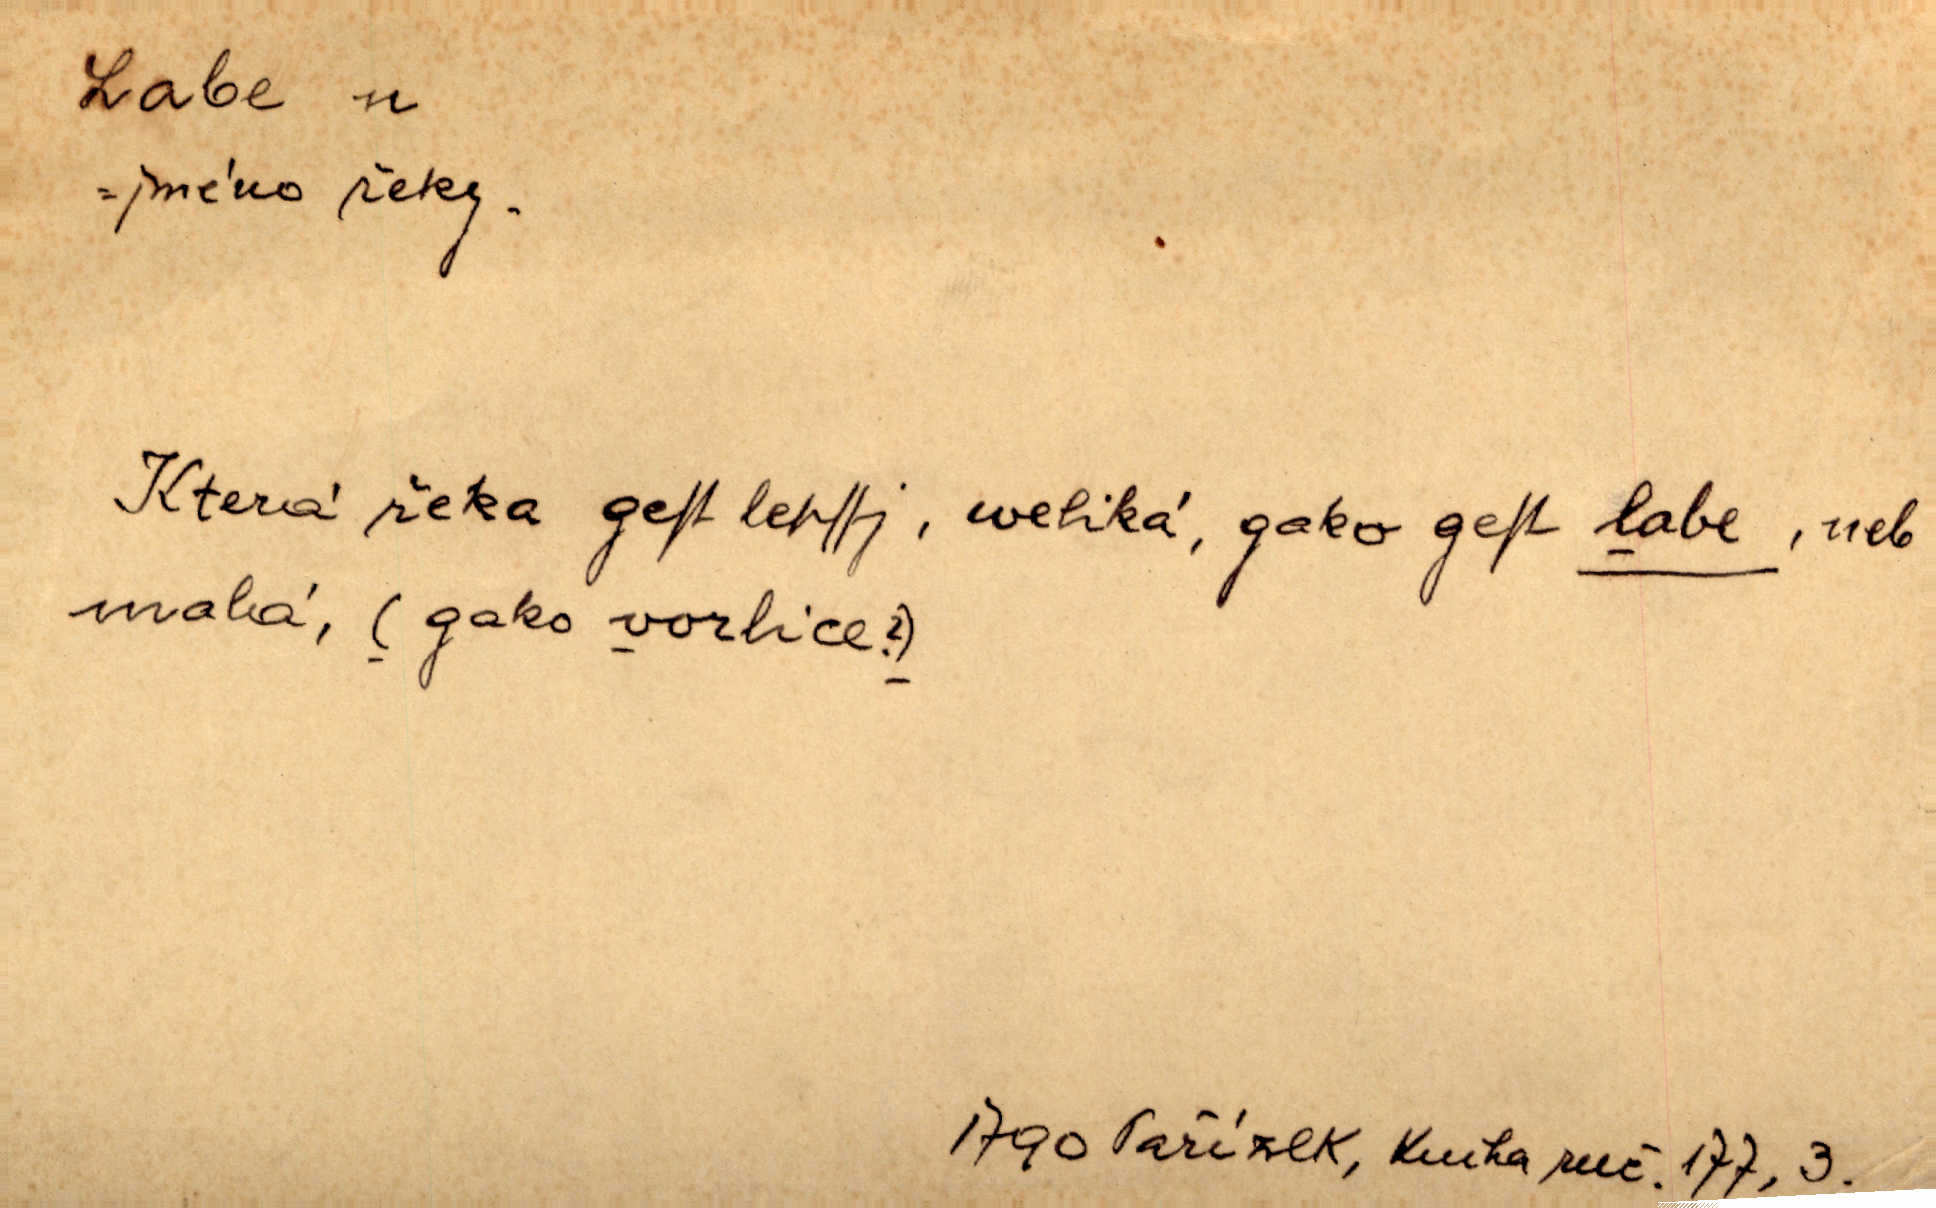 Labe n
= jméno řeky.
Která řeka geſt lepſſj, weliká, gako geſt labe, neb
malá, (gako vorlice?)
1790 Pařízek, Kniha ruč. 177, 3.